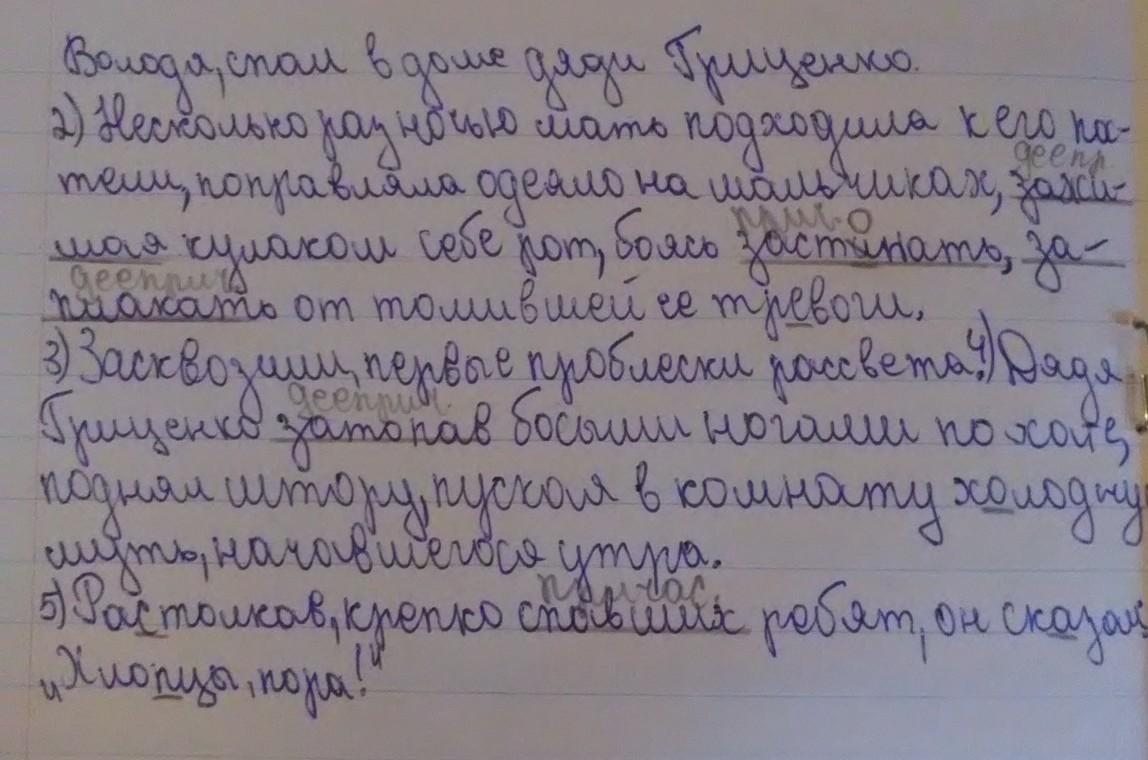 Володя, спал в доме дяди Гриценко.
2) Несколько раз ночью мать подходила к его по-
деепр.
тели, поправляла одеяло на мальчиках, зажи-
прич.
мая кулаком себе рот, боясь застонать, за-
дееприч
плакать от томившей ее тревоги.
3) Засквозили, первые проблески рассвета. 4) Дядя
дееприч.
Гриценко затопав босыми ногами по хате,
поднял штору, пуская в комнату холодную
муть, начавшегося утра.
причас.
5) Растолкав, крепко спавших ребят, он сказал
„Хлопцы, пора!"